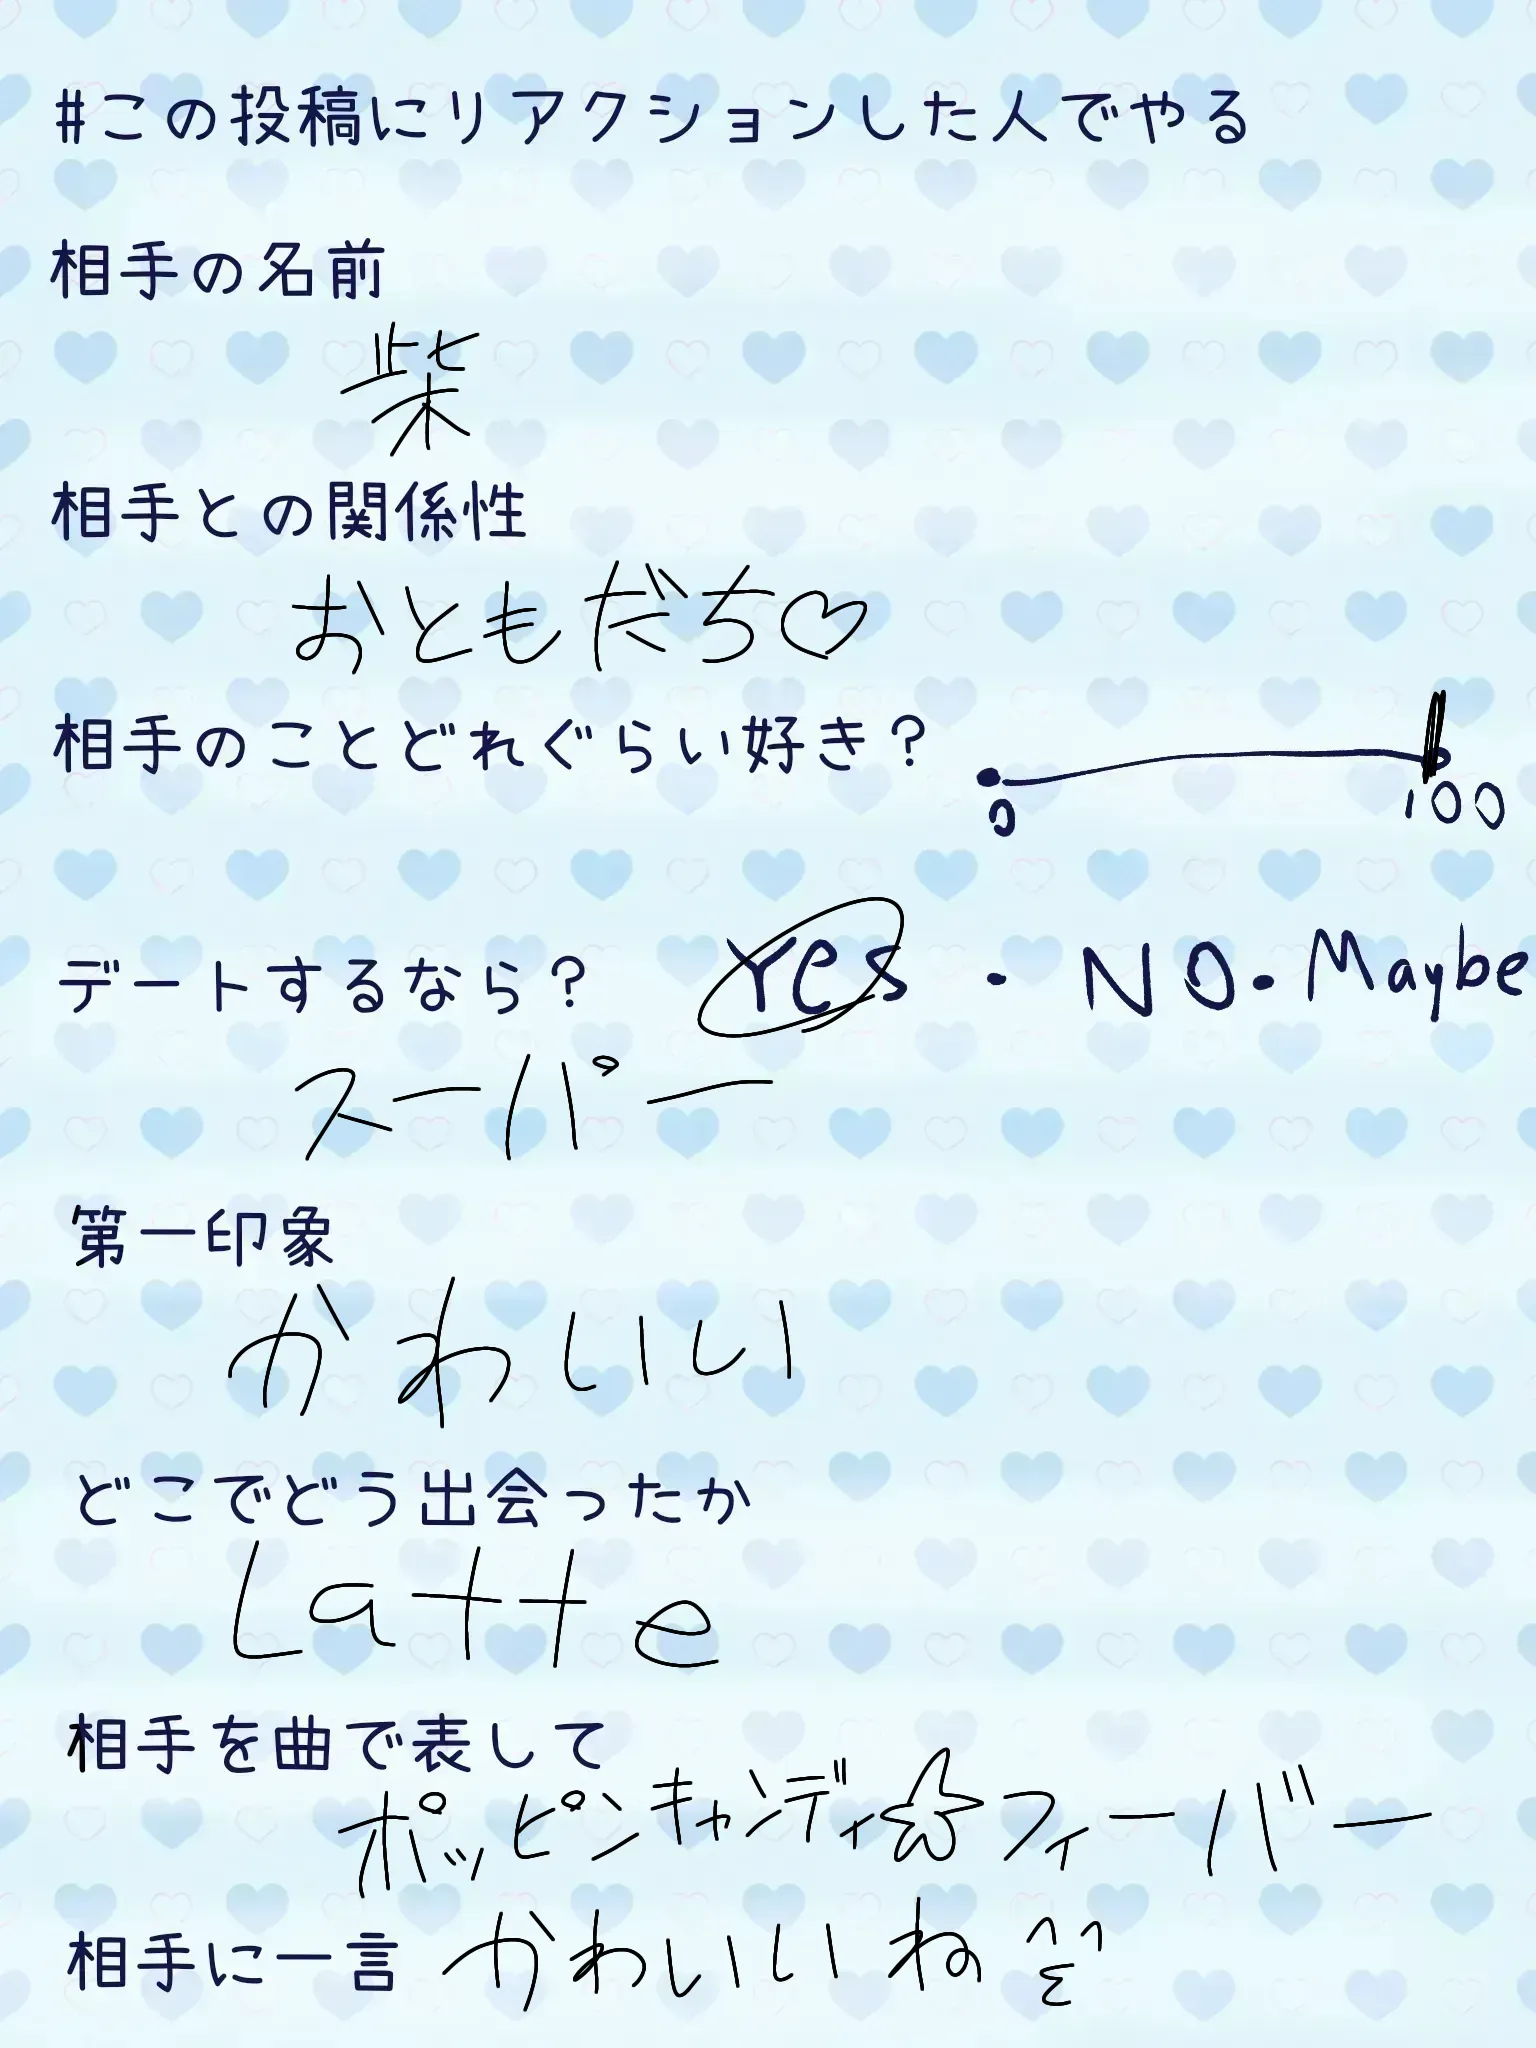 #この投稿にリアクションした人でやる
相手の名前
柴
相手との関係性
おともだち♡
相手のことどれぐらい好き？
0 100
デートするなら？ Yes ・ NO・Maybe
スーパー
第一印象
かわいい
どこでどう出会ったか
Latte
相手を曲で表して
ポッピンキャンディ☆フィーバー
相手に一言 かわいいね